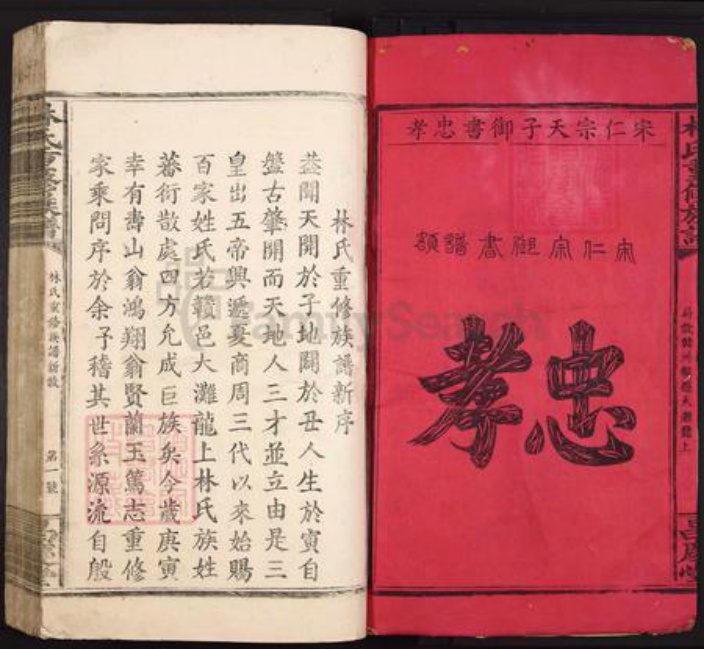 宋仁宗天子御書忠孝
宋仁宗御書譜額
忠孝
林氏重修族譜新序
蓋聞天開於子地闢於丑人生於寅自
盤古肇開而天地人三才並立由是三
皇出五帝興遞夏商周三代以來始賜
百家姓氏若贛邑大灘龍上林氏族姓
蕃衍散處四方允成巨族矣今歲庚寅
幸有壽山翁鴻翔翁賢蘭玉篤志重修
家乘問序於余予稽其世系源流自殷
林氏重修族譜新敘
第一號
FamilySearch